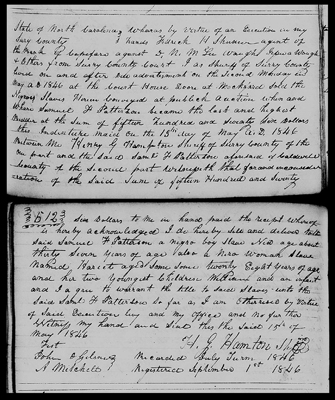 State of North Carolina, Whereas by Virtue of an Execution in my
hands Fidrick H Shuman agent of
the Bank of Cape fear against D. R. M. Lee Waugh
& Other from Surry County Court I as Sheriff of Surry County
levied on and after due advertisement on the Second Monday in
May A.D. 1846 at the Court House Door at Rockford Sold the
Negroes Slaves Named Conveyed at publick Auction when and
Where Samuel F. Patterson became the last and highest
bidder at the Sum of fifteen hundred and Seventy Six dollars
this Indenture made on the 15th day of May A.D. 1846
Between Me Henry G Hampton Sheriff of Surry County of the
one part and the Said Saml F Patterson aforesaid of Caldwell
County of the Second part Witnesseth that for and in consider
eration of the Said Sum of fifteen Hundred and Seventy
612 Six Dollars to Me in hand paid the receipt whereof
is hereby acknowledged I do hereby Sell and deliver unto
Said Samuel F Patterson a negro boy Slave Ned age about
thirty Seven Years of age also a Negro Woman Slave
Named Hariett aged Some Twenty Eight Years of age
and her two Youngest Children William and an infant
and I agree to warrant the title to Said Slaves unto the
Said Saml F Patterson So far as I am Authorised by Virtue
of Said Execution levy and my office and No further
Witness my hand and Seal this the Said 15th of
May 1846
H. G. Hamton Shff
Test
John Recorded July Term 1846
A Mitchell Registered September 1st 1846